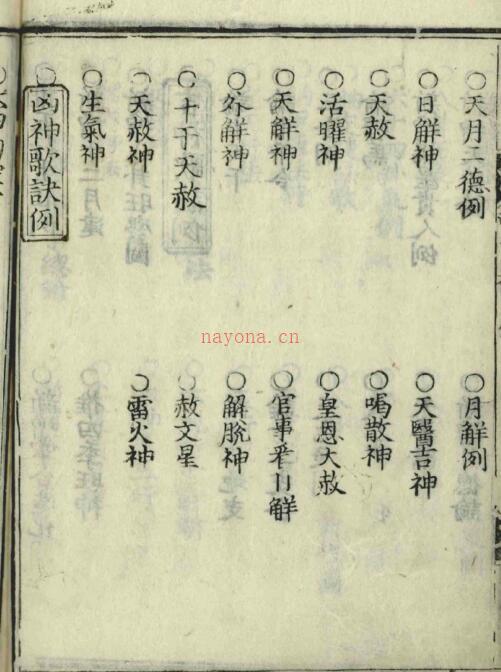 ○天月二德例 ○月解例
○日解神 ○天醫吉神
○天赦 ○喝散神
○活曜神 ○皇恩大赦
○天解神 ○官事釆日解
○外解神 ○解脫神
○十干天赦 ○赦文星
○天赦神 ○雷火神
○生氣神
○凶神歌訣例
nayona.cn